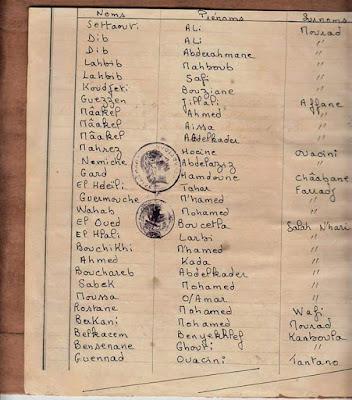 Noms Prénoms Surnoms
Settaouti Ali Mourad
Dib Ali "
Dib Abderahmane "
Lahbib Mahboub "
Lahbib Safi "
Koudjeti Bouziane "
Guezzen Jillali Affane
Mâakel Ahmed "
Mâakel Aissa "
Mâakel Abdelkader "
Mahrez Hocine Ouacini
Nemiche Abdelaziz "
Gard Hamdoune Châabane
El Hdeili Tahar Farradj
Guermouche M'hamed "
Wahab Mohamed "
El Oued Boucetta Salah N'hari
El Hlali Larbi "
Bouchikhi M'hamed "
Ahmed Kada "
Bouchareb Abdelkader "
Sabek Mohamed "
Moussa O/Amar "
Rostane Mohamed Wafi
Berkani Mohamed Mourad
Belkacem Benyekhlef Kanboula
Bensenane Ghouti "
Guennad Ouacini Tantano